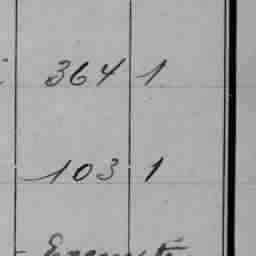 364 1
103 1